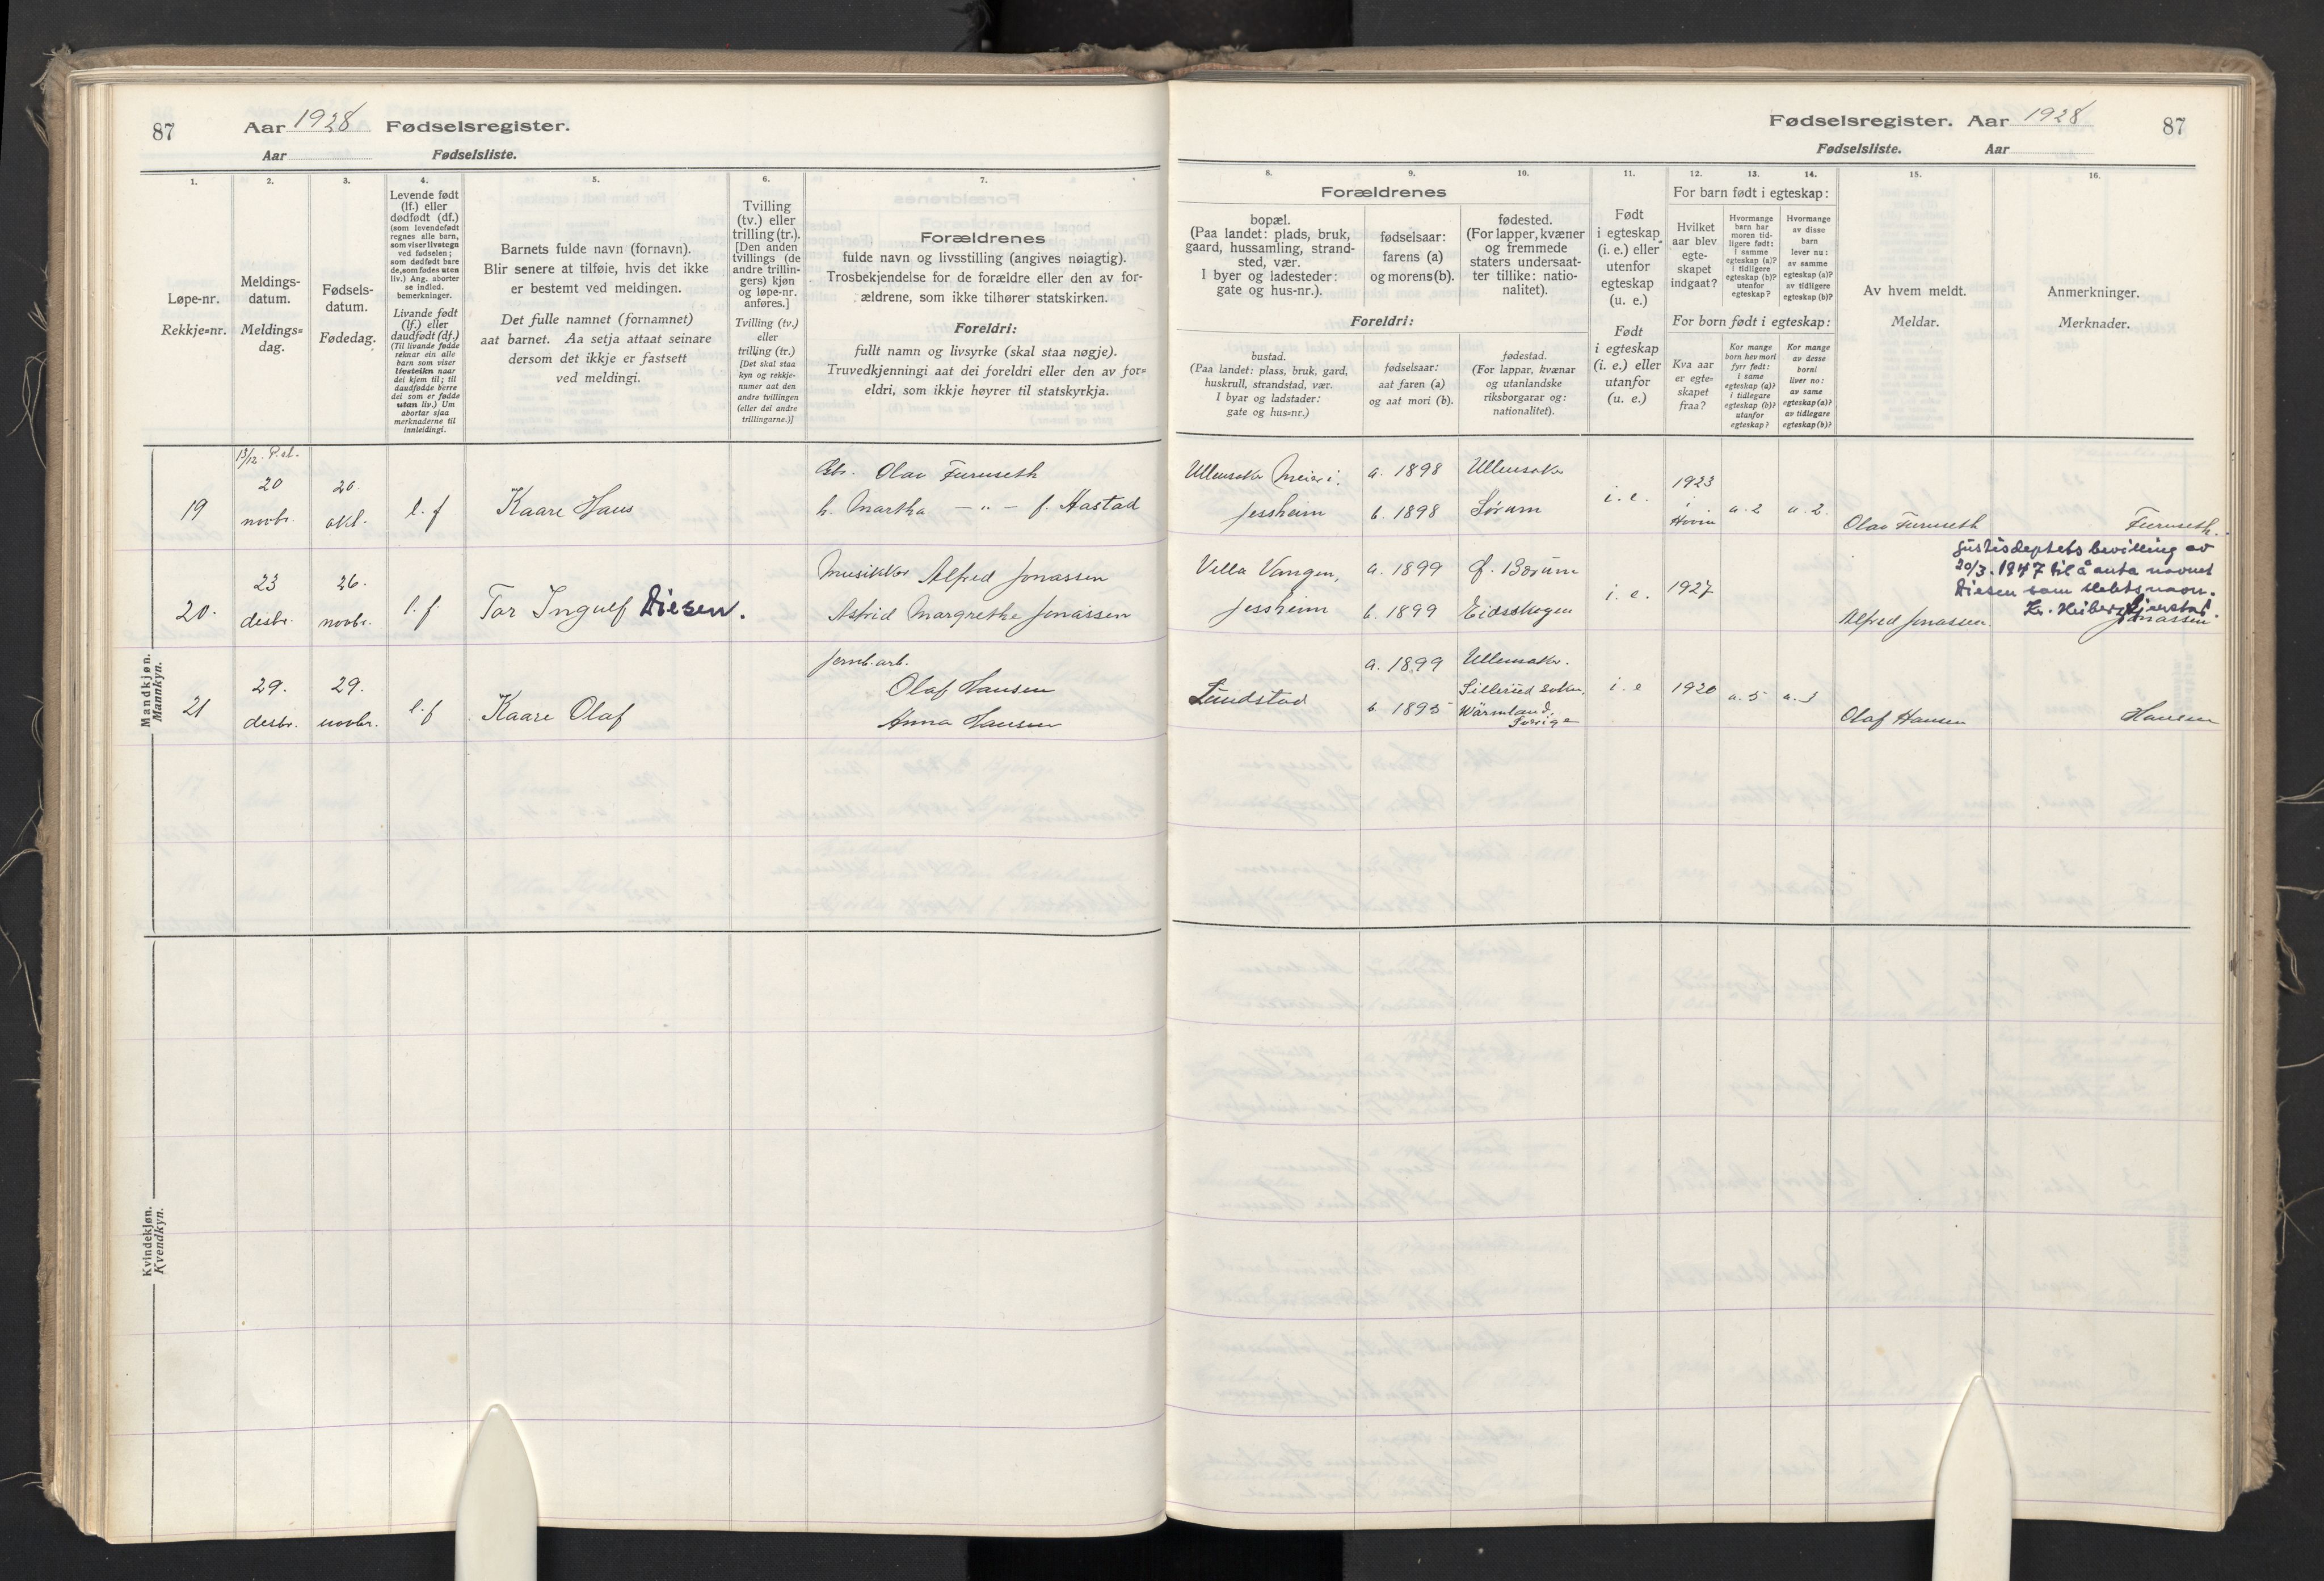 87
Aar 1928 Fødselsregister.
Aar Fødselsliste.
1. 2. 3. 4. 5. 6. 7.
Løpe-nr.
Rekkje-nr.
Meldings-
datum.
Meldings-
dag.
Fødsels-
datum.
Fødedag.
Levende født
(lf.) eller
dødfødt (df.)
(som levendefødt
regnes alle barn,
som viser livstegn
ved fødselen;
som dødfødt bare
de, som fødes uten
liv.) Ang. aborter
se indled.
bemerkninger.
Livande født
(lf.) eller
daudfødt (df.)
(Til livande fødde
reknar ein alle
barn som viser
livsteikn naar
dei kjem til; til
daudfødde berre
dei som er fødde
utan liv.) Um
abortar sjaa
merknaderne til
innleidingi.
Barnets fulde navn (fornavn).
Blir senere at tilføie, hvis det ikke
er bestemt ved meldingen.
Det fulle namnet (fornamnet)
aat barnet. Aa setja attaat seinare
dersom det ikkje er fastsett
ved meldingi.
Tvilling
(tv.) eller
trilling (tr.).
[Den anden
tvillings (de
andre trillin-
gers) kjøn
og løpe-nr.
anføres.]
Tvilling (tv.)
eller
trilling (tr.)
[Det skal staa
kyn og rekkje-
numer aat den
andre tvillingen
(eller dei andre
trillingarne.)]
Forældrenes
fulde navn og livsstilling (angives nøiagtig).
Trosbekjendelse for de forældre eller den av for-
ældrene, som ikke tilhører statskirken.
Foreldri:
fullt namn og livsyrke (skal staa nøgje).
Truvedkjenningi aat dei foreldri eller den av for-
eldri, som ikkje høyrer til statskyrkja.
Mandkjøn.
Mannkyn.
13/12. P.st.
20 26. Olav Furuseth
19 novbr. okt. l. f Kaare Hans h. Martha — „ — f. Hastad
23 26. Musikker Alfred Jonassen
20. desbr. novbr. l. f. Tor Ingulf Diesen. Astrid Margrethe Jonassen
jernb. arb.
29. 29. Olaf Hansen
21 desbr. novbr. l. f Kaare Olaf Anna Hansen
Kvindekjøn.
Kvendkyn.
Fødselsregister. Aar 1928 87
Fødselsliste. Aar
8. 9. 10. 11. 12. 13. 14. 15. 16.
Forældrenes
bopæl.
(Paa landet: plads, bruk,
gaard, hussamling, strand-
sted, vær.
I byer og ladesteder:
gate og hus-nr.).
fødselsaar:
farens (a)
og morens (b).
fødested.
(For lapper, kvæner
og fremmede
staters undersaat-
ter tillike: natio-
nalitet).
Foreldri:
bustad.
(Paa landet: plass, bruk, gard,
huskrull, strandstad, vær.
I byar og ladstader:
gate og hus-nr.)
fødselsaar:
aat faren (a)
og aat mori (b).
fødestad.
(For lappar, kvænar
og utanlandske
riksborgarar og:
nationalitet).
Født
i egteskap
(i. e.) eller
utenfor
egteskap
(u. e.)
Født
i egteskap
(i. e.) eller
utanfor
(u. e.)
For barn født i egteskap:
Hvilket
aar blev
egte-
skapet
indgaat?
Hvormange
barn har
moren tid-
ligere født:
i samme
egteskap (a)?
i tidligere
egteskap (b)?
utenfor
egteskap?
Hvormange
av disse
barn
lever nu:
av samme
egteskap (a)?
av tidligere
egteskap (b)?
For born født i egteskap:
Kva aar
er egte-
skapet
fraa?
Kor mange
born hev mori
fyrr født:
i same
egteskap (a)?
i tidlegare
egteskap (b)?
utanfor
egteskap?
Kor mange
av desse
borni
liver no:
av same
egteskap (a)?
av tidlegare
egteskap (b)?
Av hvem meldt.
Meldar.
Anmerkninger.
Merknader.
Ullensaker Meieri. a. 1898 Ullensaker 1923
Jessheim b. 1898 Sørum i. e. i Hovin a. 2 a. 2. Olav Furuseth Furuseth.
Justisdeptets bevilling av
20/3. 1947 til å anta navnet
Diesen som slektsnavn.
Kr. Heiberg
Villa Vangen, a. 1899 Ø. Bærum
Jessheim b. 1899 Eidskogen i. e. 1927 Alfred Jonassen. Jonassen
a. 1899 Ullensaker.
Lundstad b. 1895 Sillerud sokn, i. e 1920 a. 5 a. 3
Wärmland,
Sverige
Olaf Hansen Hansen